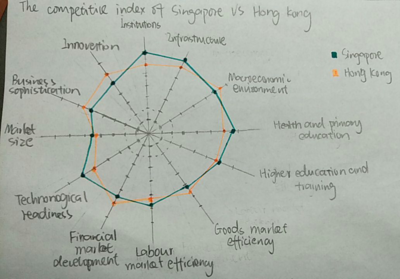 The competitive index of Singapore VS Hong Kong
Institutions
Infrastructure
Innovation
Singapore
Hong Kong
Macroeconomic
environment
Business
sophistication
Market
size
Health and primary
education
Higher education and
training
Technological
readiness
Goods market
efficiency
Financial
market
development
Labour
market efficiency